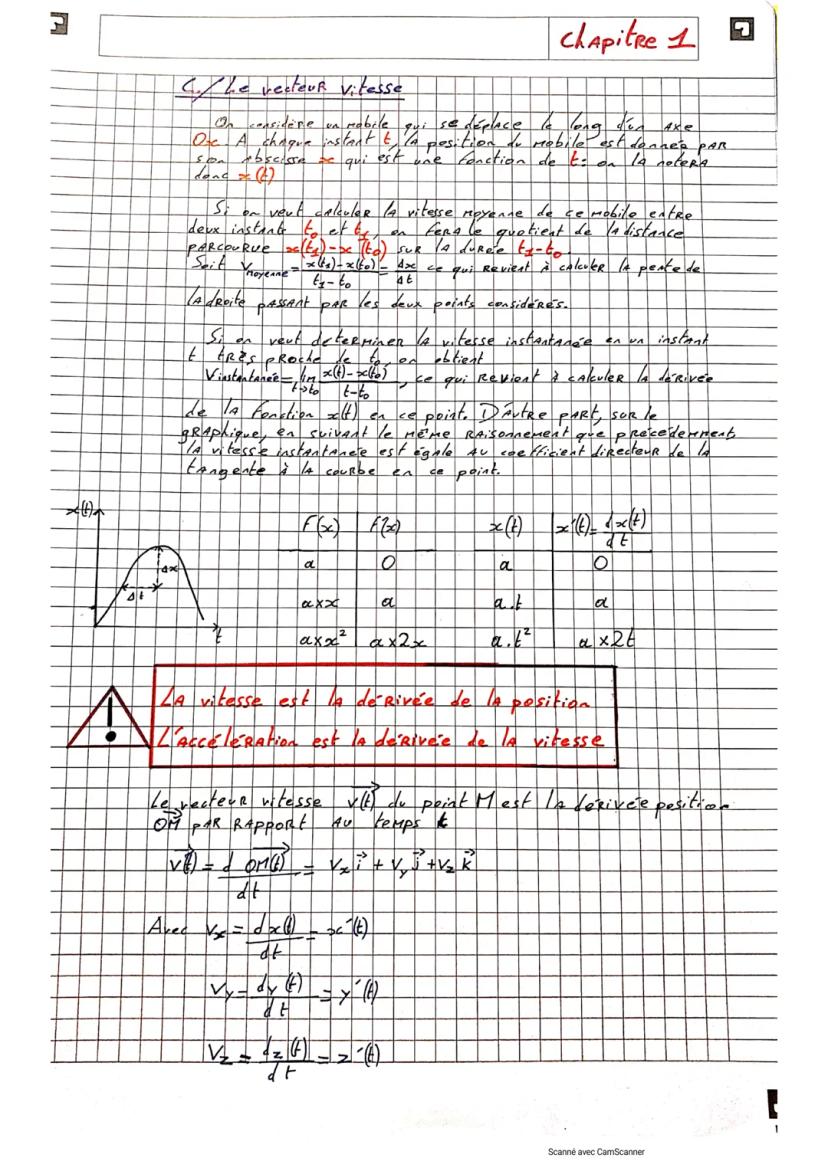 Chapitre 1
C./ Le vecteur vitesse
On considère un mobile qui se déplace le long d'un axe
Ox. A chaque instant t, la position du mobile est donnée par
son abscisse x qui est une fonction de t: on la notera
donc x(t)
Si on veut calculer la vitesse moyenne de ce mobile entre
deux instants t₀ et t₁, on fera le quotient de la distance
parcourue x(t₁)-x(t₀) sur la durée t₁-t₀.
Soit Vmoyenne = x(t₁)-x(t₀)/t₁-t₀ = Δx/Δt ce qui revient à calculer la pente de
la droite passant par les deux points considérés.
Si on veut determiner la vitesse instantanée en un instant
t très proche de t₀, on obtient
Vinstantanée = lim t→t₀ x(t)-x(t₀)/t-t₀, ce qui revient à calculer la dérivée
de la fonction x(t) en ce point. D'autre part, sur le
graphique, en suivant le même raisonnement que précédemment
la vitesse instantanée est égale au coefficient directeur de la
tangente à la courbe en ce point.
x(t)
Δx
Δt
t
F(x) F'(x) x(t) x'(t)= dx(t)/dt
a 0 a 0
a×x a a.t a
a×x² a×2x a.t² a×2t
La vitesse est la dérivée de la position
!
L'accélération est la dérivée de la vitesse
Le vecteur vitesse v(t)⃗ du point M est la dérivée position
OM⃗ par rapport au temps t
v(t)⃗ = d OM(t)⃗/dt = Vx i⃗ + Vy j⃗ + Vz k⃗
Avec Vx = dx(t)/dt = x'(t)
Vy = dy(t)/dt = y'(t)
Vz = dz(t)/dt = z'(t)
Scanné avec CamScanner